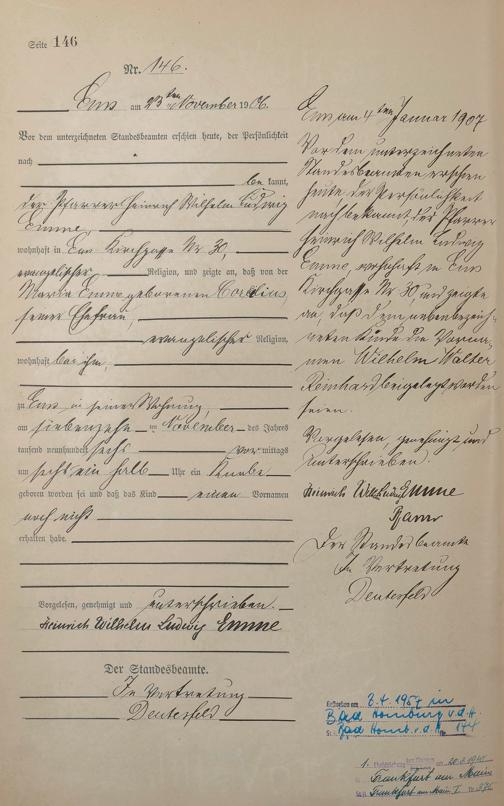 Seite 146
Nr. 146.
Ems am 23ten November 1906.
Vor dem unterzeichneten Standesbeamten erschien heute, der Persönlichkeit
nach
bekannt,
der Pfarrer Heinrich Wilhelm Ludwig
Emme,
wohnhaft in Ems Kirchgasse Nr 30,
evangelischer Religion, und zeigte an, daß von der
Maria Emme geborenen Cordius,
seiner Ehefrau,
evangelischer Religion,
wohnhaft bei ihm,
zu Ems in seiner Wohnung,
am siebenzehn ten November des Jahres
tausend neunhundert sechs Vormittags
um sechs ein halb Uhr ein Knabe
geboren worden sei und daß das Kind einen Vornamen
noch nicht
erhalten habe.
Vorgelesen, genehmigt und unterschrieben.
Heinrich Wilhelm Ludwig Emme
Der Standesbeamte.
In Vertretung
Deutesfeld
Ems am 4ten Januar 1907
Vor dem unterzeichneten
Standesbeamten erschien
heute der Persönlichkeit
nach bekannt, der Pfarrer
Heinrich Wilhelm Ludwig
Emme, wohnhaft in Ems
Kirchgasse Nr 30, und zeigte
an, daß dem nebenbezeich-
neten Kinde die Vorna-
men Wilhelm Walter
Reinhard beigelegt worden
seien.
Vorgelesen, genehmigt und
unterschrieben.
Heinrich Wilh. Ludwig Emme
Pfarrer
Der Standesbeamte
In Vertretung
Deutesfeld
Gestorben am 3.4.1957 in
Bad Homburg v.d.H.
Bad Homb. v.d.H. 174
1.
Frankfurt am Main
Frankfurt am Main